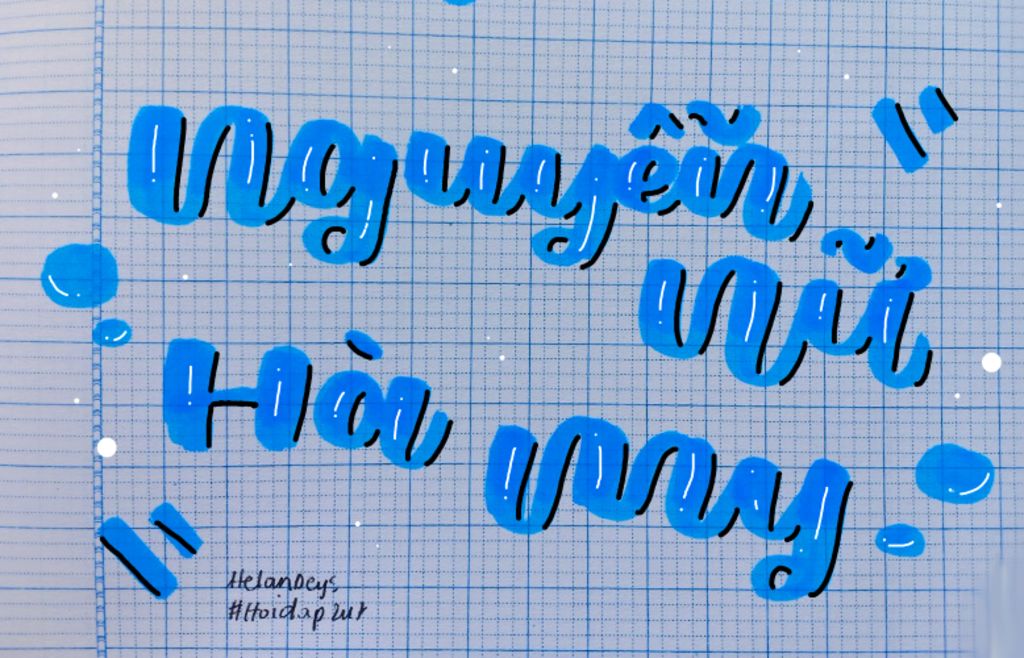 Nguyễn
Nữ
Hà
My
HelanDeys
#Hoidap247